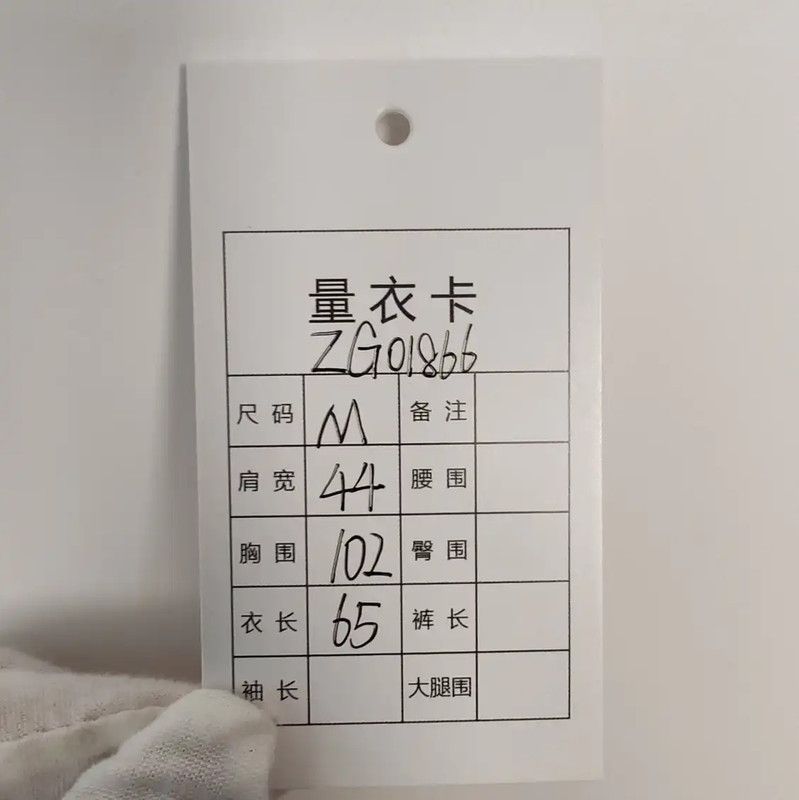 量衣卡
ZG01866
尺码 M 备注
肩宽 44 腰围
胸围 102 臀围
衣长 65 裤长
袖长 大腿围